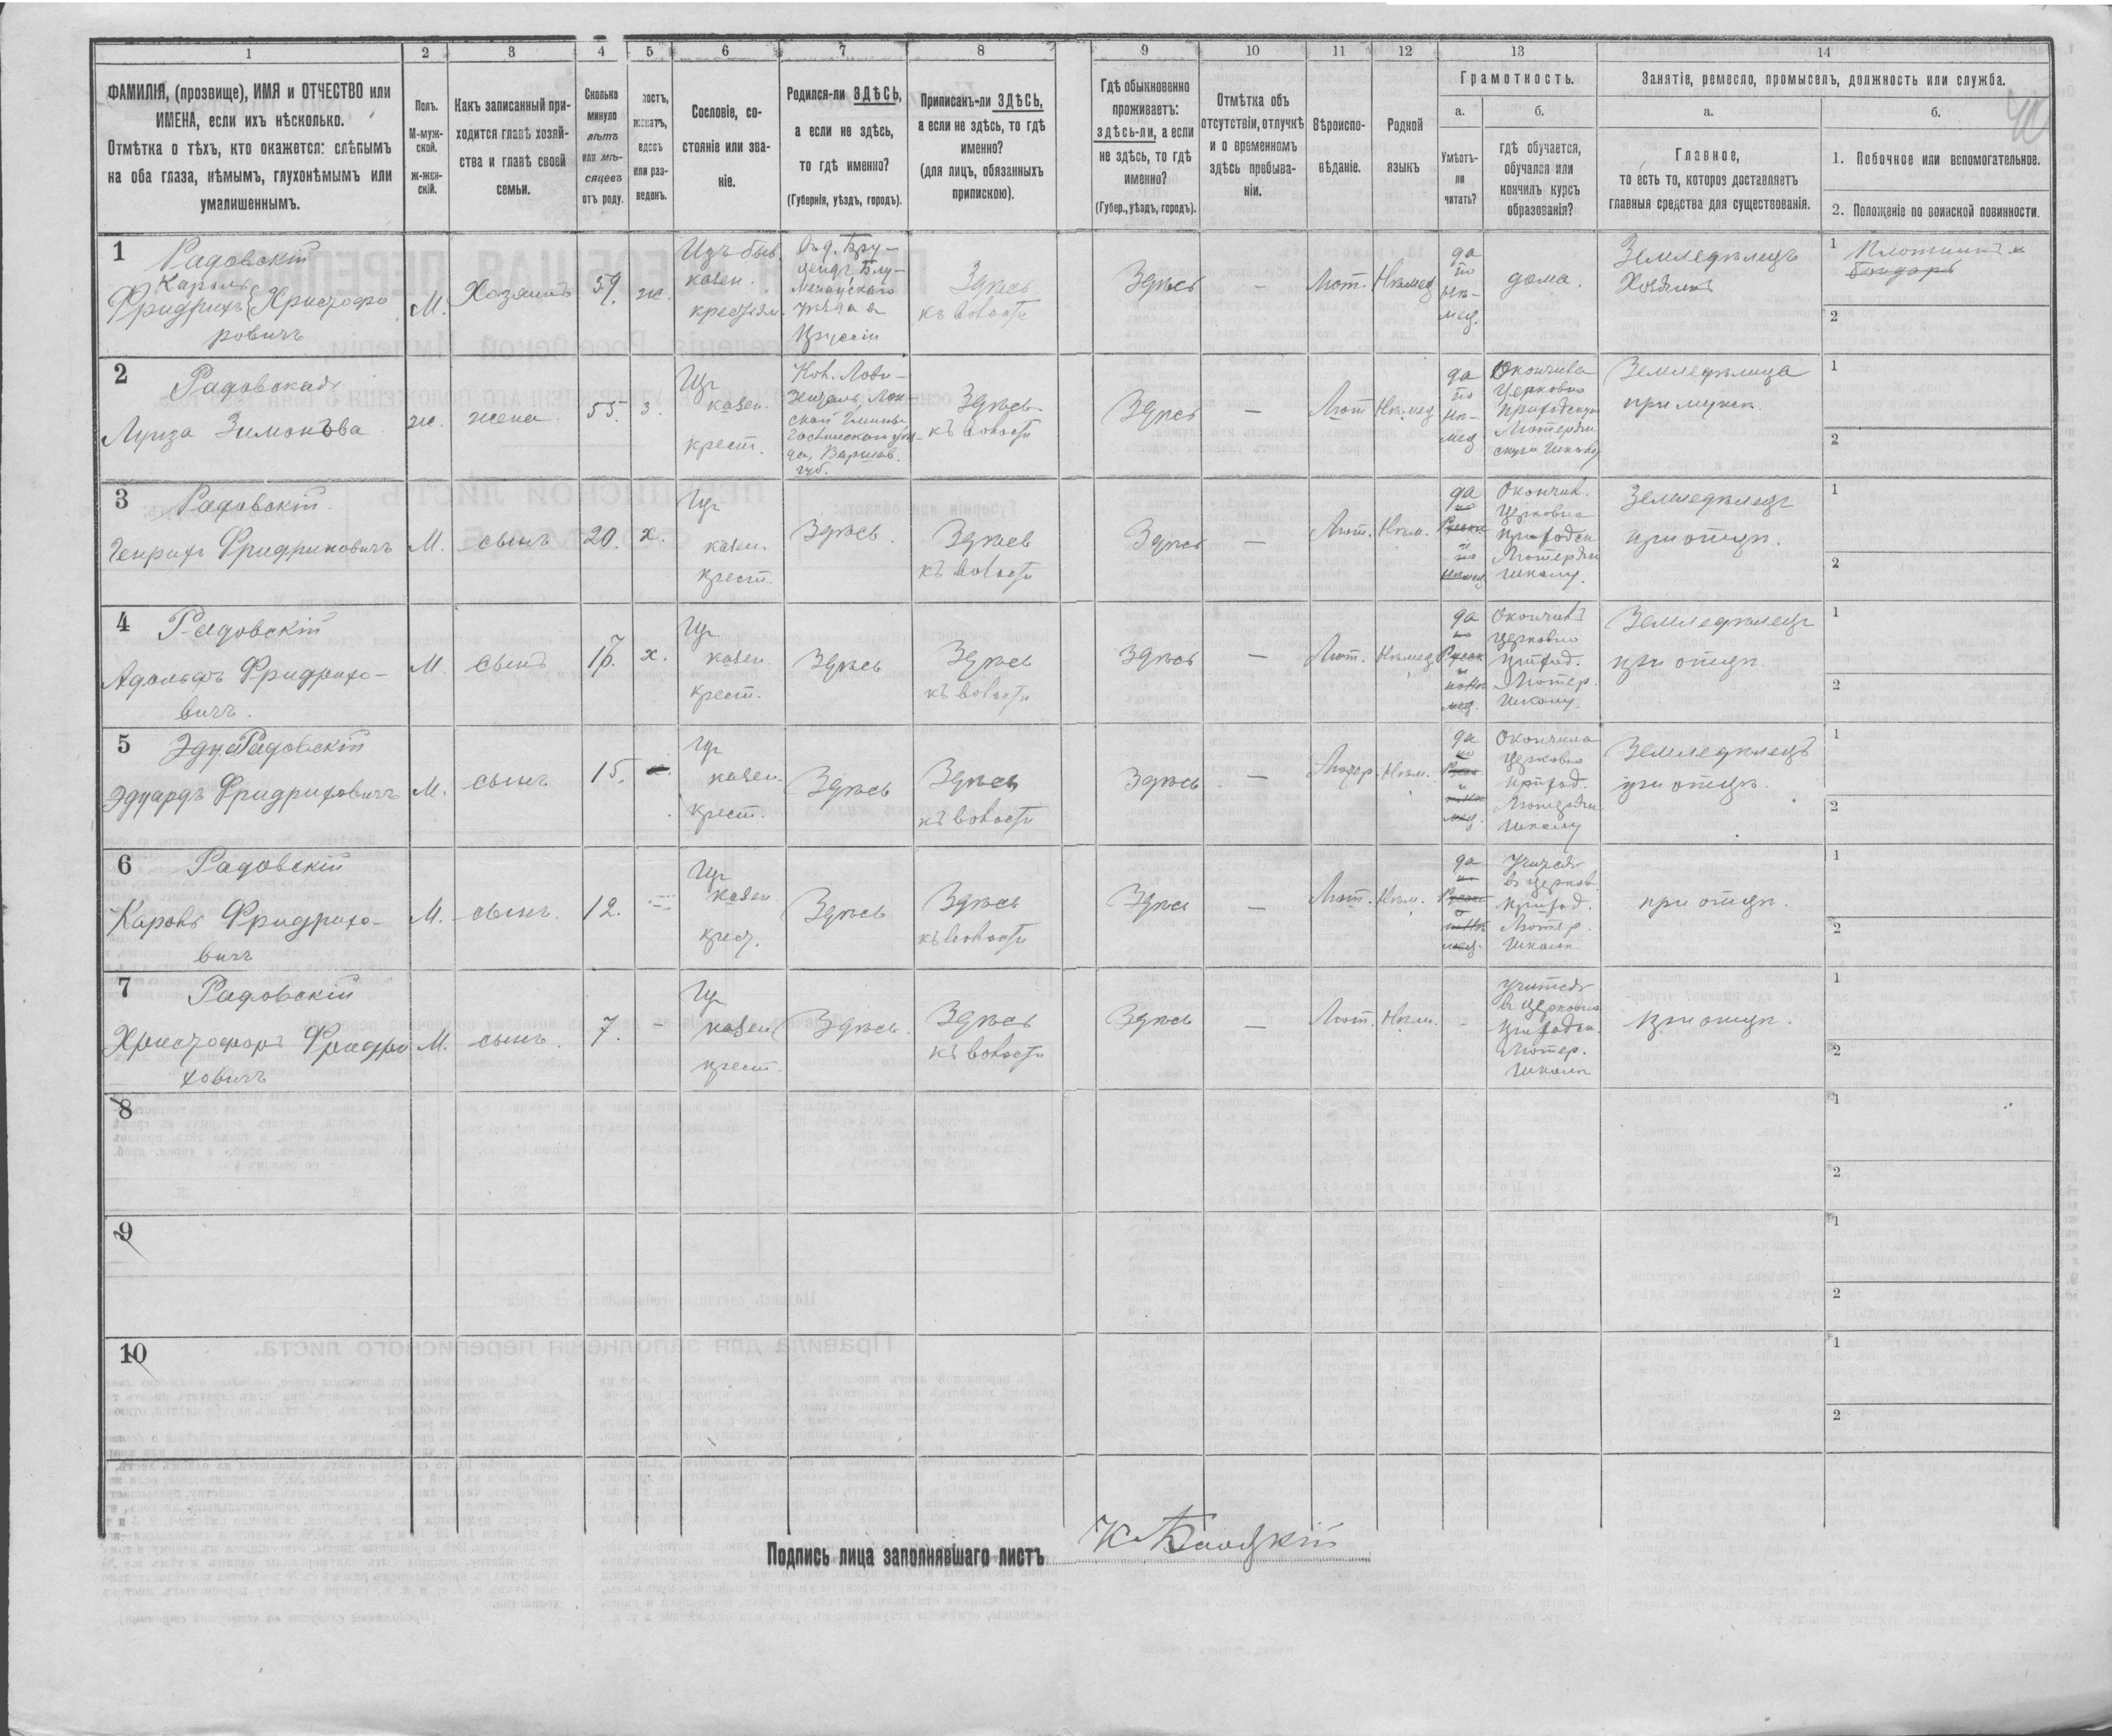 1 2 3 4 5 6 7 8 9 10 11 12 13 14
ФАМИЛІЯ, (прозвище), ИМЯ и ОТЧЕСТВО или
ИМЕНА, если ихъ нѣсколько.
Отмѣтка о тѣхъ, кто окажется: слѣпымъ
на оба глаза, нѣмымъ, глухонѣмымъ или
умалишеннымъ.
Полъ.
М-муж-
ской.
Ж-жен-
скій.
Какъ записанный при-
ходится главѣ хозяй-
ства и главѣ своей
семьи.
Сколько
минуло
лѣтъ
или мѣ-
сяцевъ
отъ роду.
лостъ,
женатъ,
вдовъ
или раз-
веденъ.
Сословіе, со-
стояніе или зва-
ніе.
Родился-ли ЗДѢСЬ,
а если не здѣсь,
то гдѣ именно?
(Губернія, уѣздъ, городъ).
Приписанъ-ли ЗДѢСЬ,
а если не здѣсь, то гдѣ
именно?
(для лицъ, обязанныхъ
припискою).
Гдѣ обыкновенно
проживаетъ:
здѣсь-ли, а если
не здѣсь, то гдѣ
именно?
(Губер., уѣздъ, городъ).
Отмѣтка объ
отсутствіи, отлучкѣ
и о временномъ
здѣсь пребыва-
ніи.
Вѣроиспо-
вѣданіе.
Родной
языкъ
Грамотность.
а.
Умѣетъ-
ли
читать?
б.
гдѣ обучается,
обучался или
кончилъ курсъ
образованія?
Занятіе, ремесло, промыселъ, должность или служба.
а.
Главное,
то есть то, которое доставляетъ
главныя средства для существованія.
б.
1. Побочное или вспомогательное.
2. Положеніе по воинской повинности.
40
1
Радовскій
Карлъ
Фридрихъ Христофо
ровичъ
М.
Хозяинъ
59.
ж.
Изъ быв.
казен.
крестьян.
уѣзда въ
Пруссіи
Здѣсь
къ волости
Здѣсь
-
Лют.
Нѣмец
да
по
нѣ-
мец.
дома.
Земледѣлецъ
Хозяинъ
1 Плотникъ и
бондарь
2
2
Радовская
Луиза Зимонова
ж.
жена
55.
з.
Из
казен.
крест.
Варшав.
губ.
Здѣсь
къ волости
Здѣсь
-
Лют
Нѣмец
да
по
нѣ-
мец
Окончила
Церковно
приходскую
Лютеран
скую школу
Земледѣлица
при мужѣ.
1
2
3
Радовскій
Генрихъ Фридриховичъ
М.
сынъ
20.
х.
Из
казен.
крест.
Здѣсь.
Здѣсь
къ волости
Здѣсь
-
Лют.
Нѣм.
да
по
Русски
и
по
нѣмец
Окончил.
Церковно
приходск
Лютеран
школу.
Земледѣлец
при отцѣ.
1
2
4
Радовскій
Адольфъ Фридрихо-
вичъ.
М.
сынъ
х.
Из
казен.
крест.
Здѣсь
Здѣсь
къ волости
Здѣсь
-
Лют.
Нѣмец
да
по
Русск
и
по нѣ
мец.
Окончилъ
Церковно
приход.
Лютер.
школу.
Земледѣлец
при отцѣ.
1
2
5
Радовскій
Эдуардъ Фридриховичъ
М.
сынъ
15.
Из
казен.
крест.
Здѣсь
Здѣсь
къ волости
Здѣсь
-
Лютер.
Нѣм.
да
по
Русск
и
по нѣ
мец.
Окончила
Церковно
приход.
Лютеран
школу
Земледѣлецъ
при отцѣ.
1
2
6
Радовскій
Карлъ Фридрихо-
вичъ
М.
сынъ.
12.
Из
казен
крест.
Здѣсь
Здѣсь
къ волости
Здѣсь
-
Лют.
Нѣм.
да
по
Русски
и
по нѣ
мец.
Учится
въ церков.
приход.
Лютер.
школѣ
при отцѣ.
1
2
7
Радовскій
Христофоръ Фридри
ховичъ
М.
сынъ.
7.
-
Из
казен
крест.
Здѣсь.
Здѣсь
къ волости
Здѣсь
-
Лют.
Нѣм.
-
Учится
въ церковно
приходск.
Лютер.
школѣ
при отцѣ.
1
2
8
1
2
9
1
2
10
1
2
Подпись лица заполнявшаго листъ